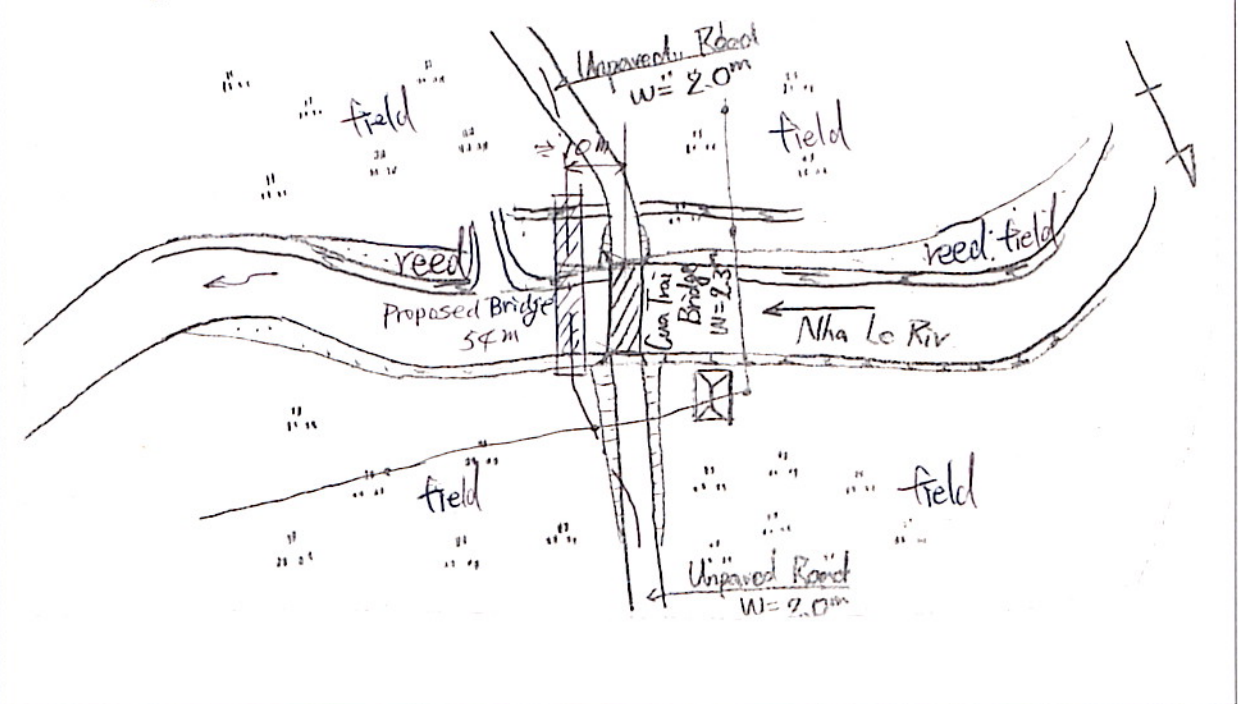 Unpaved Road
W= 2.0m
field
field
reed
reed field
Proposed Bridge
54m
Cua Trai
Bridge
W=2.3m
Nha Le Riv
field
field
Unpaved Road
W= 2.0m